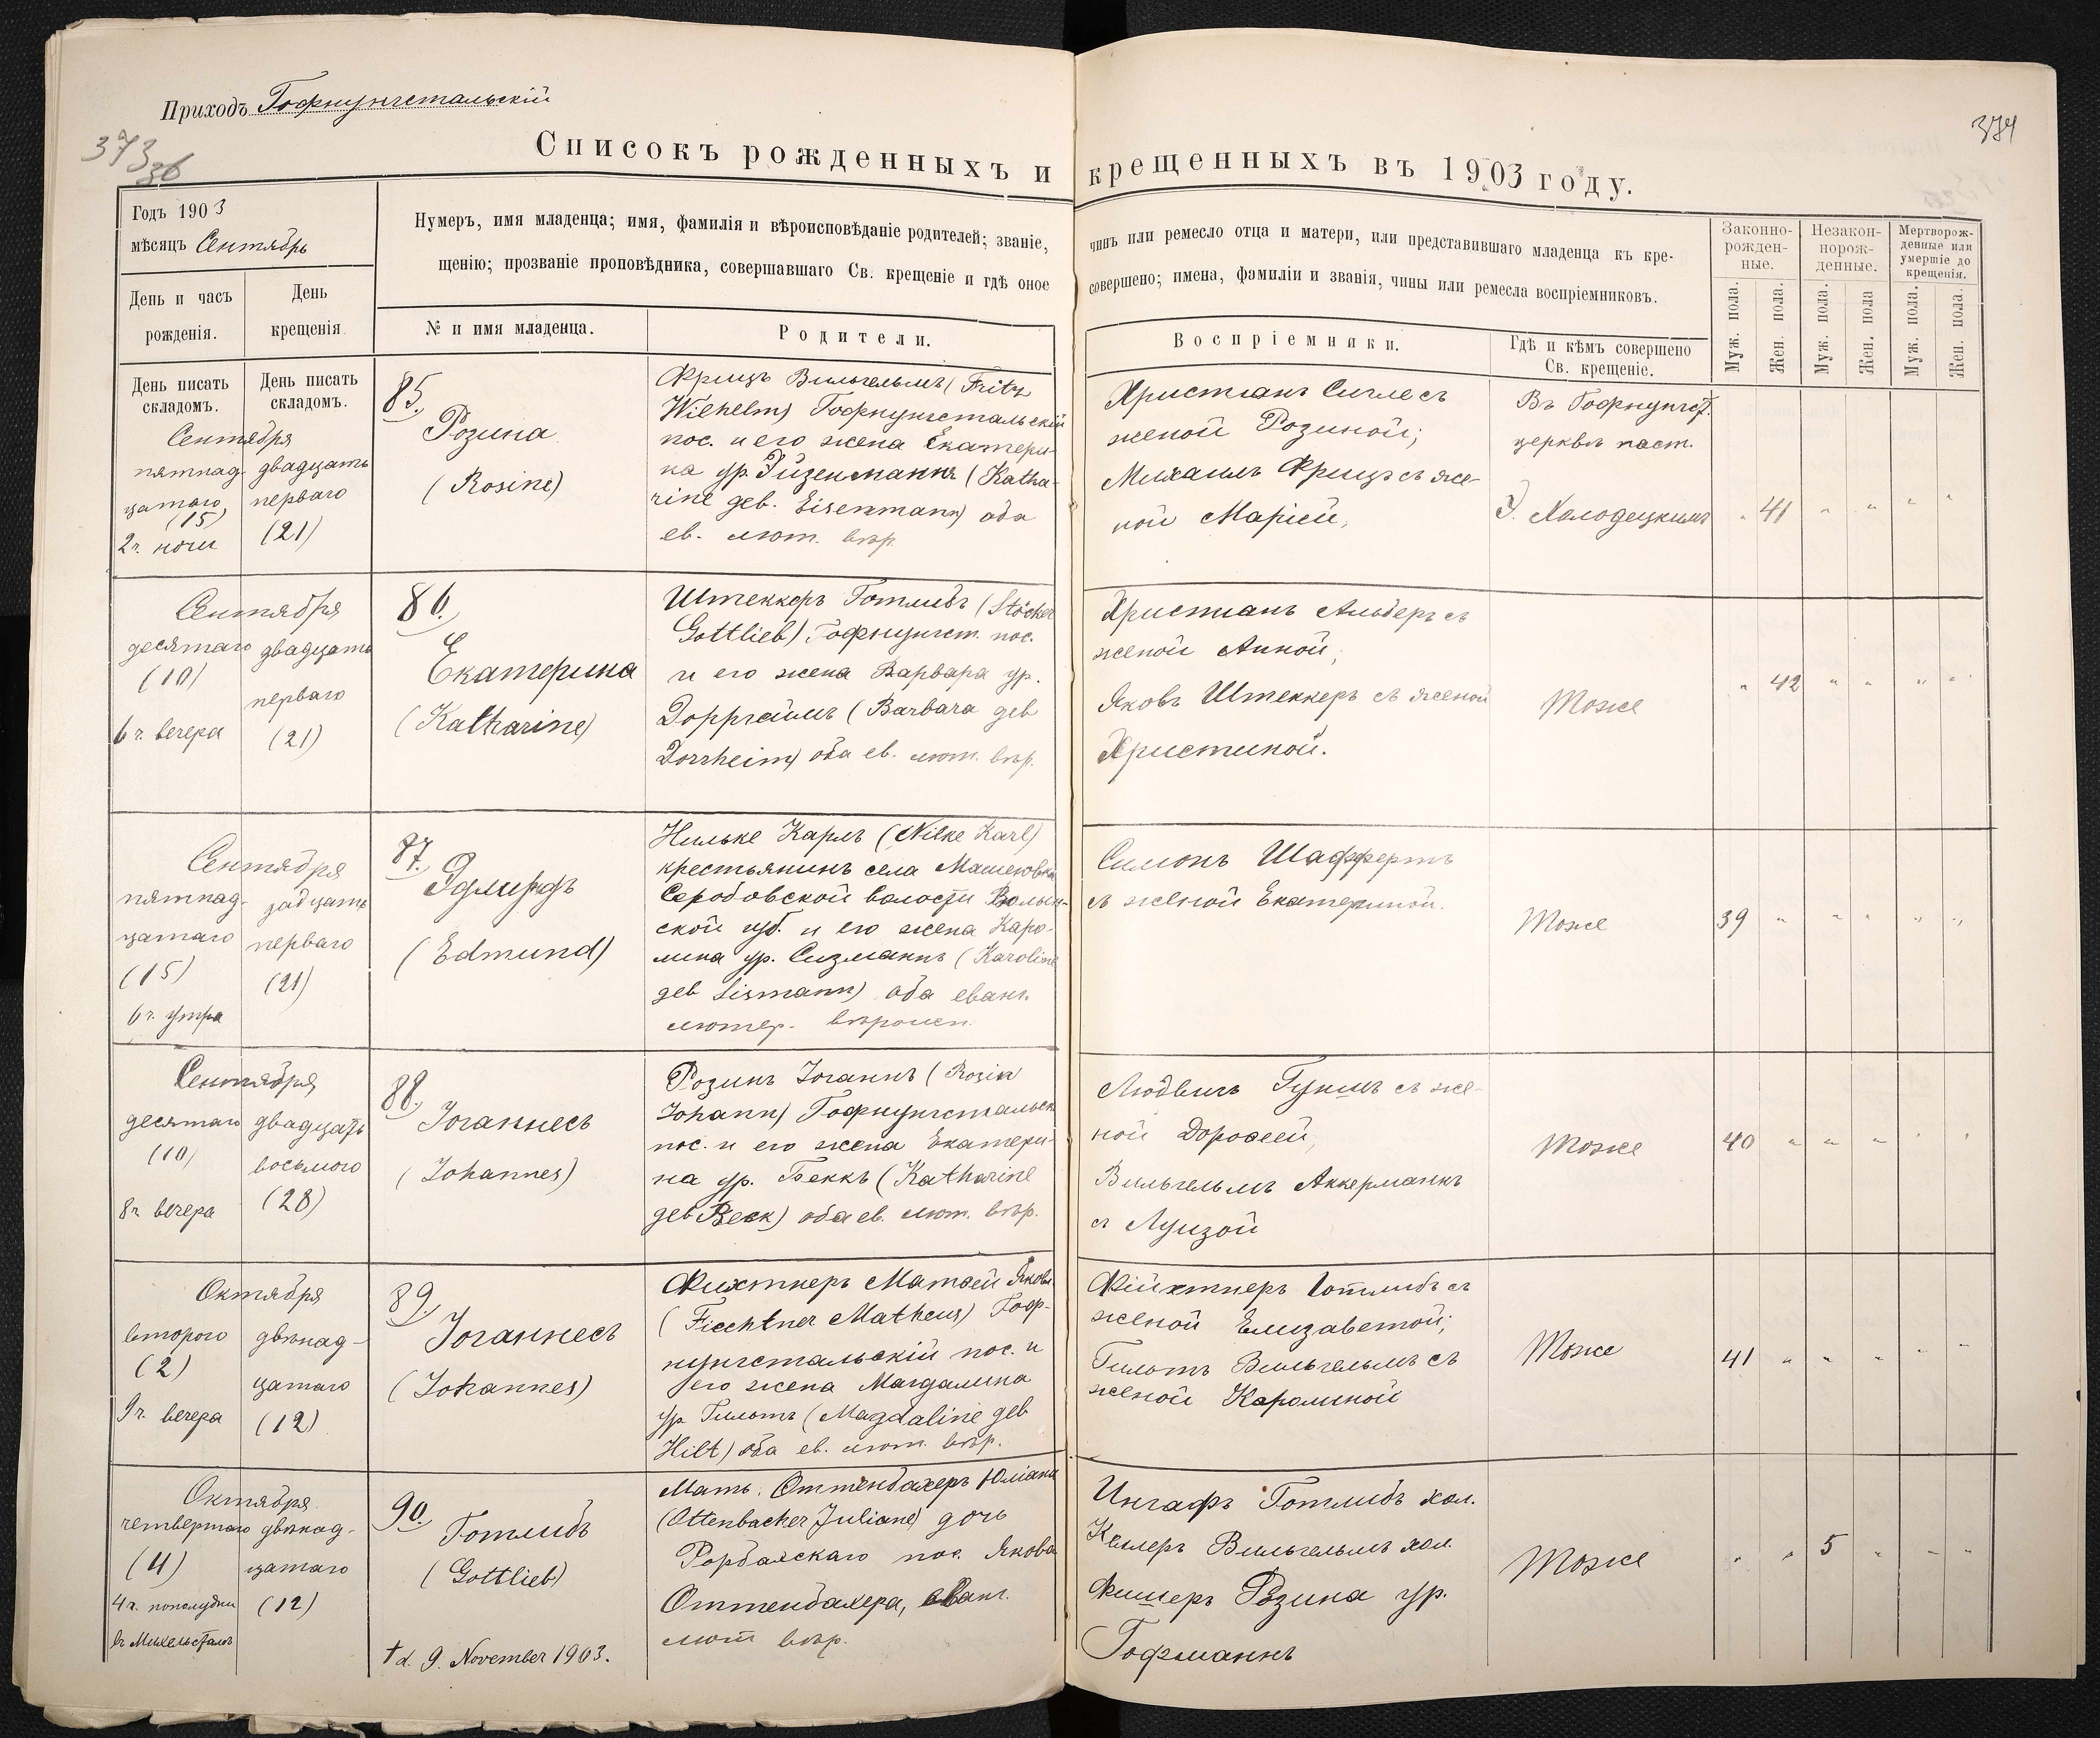 Приходъ Гофнунгстальскій
373
36
374
Списокъ рожденныхъ и крещенныхъ въ 1903 году.
Годъ 1903
мѣсяцъ Сентябрь
Нумеръ, имя младенца; имя, фамилія и вѣроисповѣданіе родителей; званіе, чинъ или ремесло отца и матери, или представившаго младенца къ кре-
щенію; прозваніе проповѣдника, совершавшаго Св. крещеніе и гдѣ оное совершено; имена, фамиліи и званія, чины или ремесла воспріемниковъ.
Законно-
рожден-
ные.
Незакон-
норож-
денные.
Мертворож-
денные или
умершіе до
крещенія.
День и часъ
рожденія.
День
крещенія.
№ и имя младенца.
Родители.
Воспріемники.
Гдѣ и кѣмъ совершено
Св. крещеніе.
Муж. пола.
Жен. пола.
Муж. пола.
Жен. пола
Муж. пола.
Жен. пола.
День писать
складомъ.
День писать
складомъ.
Сентября
пятнад-
цатаго
(15)
2 ч. ночи
двадцать
перваго
(21)
85.
Розина
(Rosine)
Фрицъ Вильгельмъ (Fritz
Wilhelm) Гофнунгстальскій
пос. и его жена Екатери-
на ур. Эйзенманнъ (Katha-
rine geb. Eisenmann) оба
ев. лют. вѣр.
Христіанъ Сигле съ
женой Розиной;
Михаилъ Фрицъ съ же-
ной Маріей,
Въ Гофнунгст.
церквѣ паст.
Э. Холодецкимъ
" 41 " " " "
Сентября
десятаго
(10)
6 ч. вечера
двадцать
перваго
(21)
86.
Екатерина
(Katharine)
Штеккеръ Готлибъ (Stöcker
Gottlieb) Гофнунгст. пос.
и его жена Варвара ур.
Дорргеймъ (Barbara geb
Dorrheim) оба ев. лют. вѣр.
Христіанъ Альберъ съ
женой Анной,
Яковъ Штеккеръ съ женой
Христиной.
Тоже
" 42 " " " "
Сентября
пятнад-
цатаго
(15)
6 ч. утра
двадцать
перваго
(21)
87.
Эдмундъ
(Edmund)
Нильке Карлъ (Nilke Karl)
крестьянинъ села
волости Волын-
ской губ. и его жена Каро-
лина ур. Сизманнъ (Karoline
geb Sismann) оба еванг.
лютер. вѣроисп.
Симонъ Шаффертъ
съ женой Екатериной.
Тоже
39 " " " " "
Сентября
десятаго
(10)
8 ч. вечера
двадцать
восьмого
(28)
88.
Іоганнесъ
(Johannes)
Розинъ Іоганнъ (Rosin
Johann) Гофнунгстальск
пос. и его жена Екатери-
на ур. Беккъ (Katharine
geb Beck) оба ев. лют. вѣр.
Людвигъ съ же-
ной Доротеей,
Вильгельмъ Аккерманнъ
съ Луизой
Тоже
40 " " " " "
Октября
второго
(2)
9 ч. вечера
двѣнад-
цатаго
(12)
89.
Іоганнесъ
(Johannes)
Фихтнеръ Матвей Яковл.
(Fiechtner Matheus) Гоф-
нунгстальскій пос. и
его жена Магдалина
ур Гильтъ (Magdaline geb
Hilt) оба ев. лют. вѣр.
Фійхтнеръ Готлибъ съ
женой Елизаветой;
Гильтъ Вильгельмъ съ
женой Каролиной
Тоже
41 " " " " "
Октября
четвертаго
(4)
4 ч. пополудни
въ Михельсталѣ
двѣнад-
цатаго
(12)
90.
Готлибъ
(Gottlieb)
† d. 9. November 1903.
Мать. Оттенбахеръ Юліана
(Ottenbacher Juliane) дочь
Рорбахскаго пос. Якова
Оттенбахера, еванг.
лют вѣр.
Готлибъ хол.
Келлеръ Вильгельмъ хол.
Фишеръ Розина ур.
Гофманнъ
Тоже
" " 5 " " "